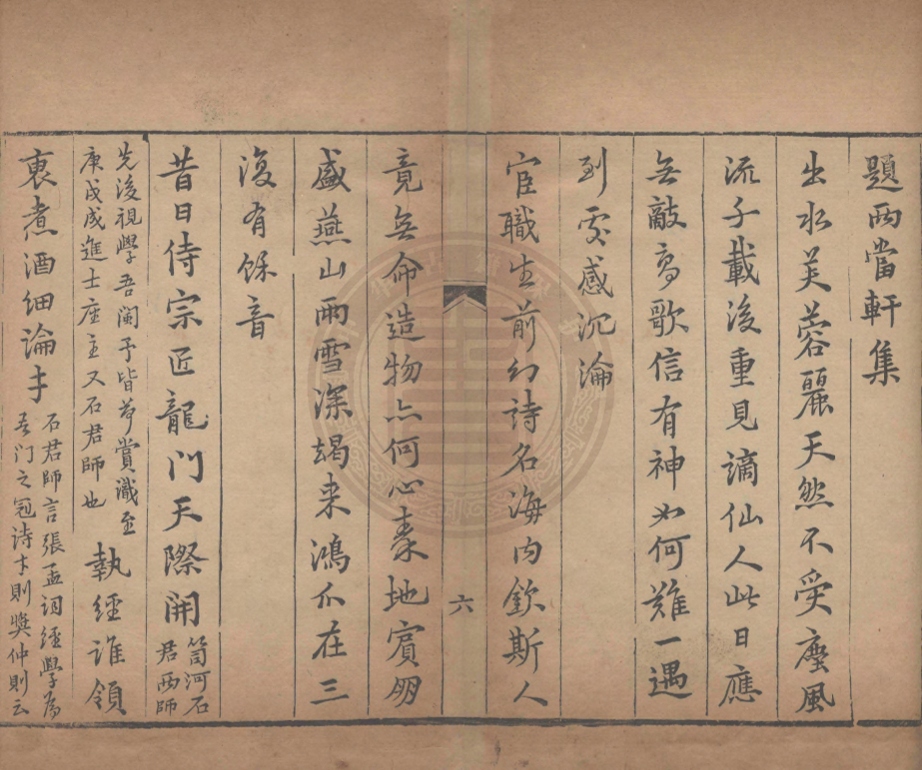 題兩當軒集
出水芙蓉麗天然不受塵風
流千載後重見謫仙人此日應
無敵高歌信有神如何難一遇
到處感沉淪
宦職生前幻詩名海內欽斯人
竟無命造物亦何心秦地賓朋
盛燕山雨雪深竭來鴻爪在三
復有餘音
昔日侍宗匠龍门天際開笥河石
君两師
先後視學吾閩予皆荷賞識至
庚戌成進士座主又石君師也執經誰領
袠煮酒細論才石君師言張孟詞經學為
吾门之冠诗才則獎仲則云
六